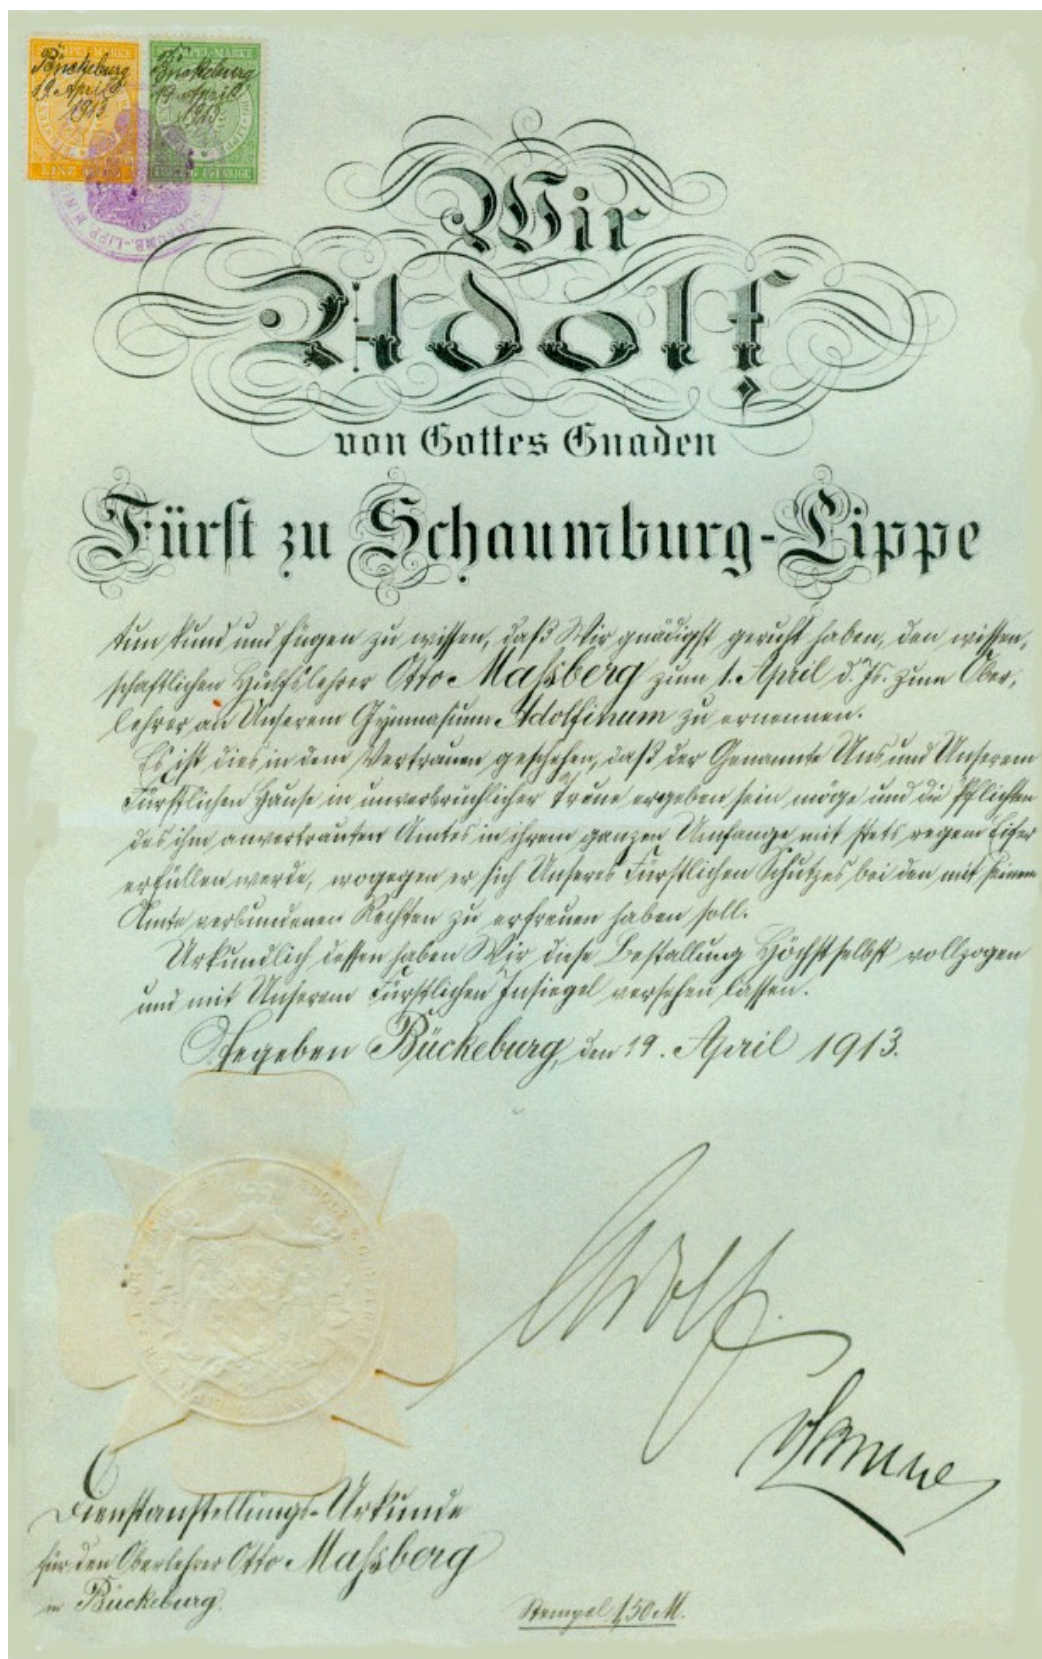 STEMPEL-MARKE
Bückeburg
19. April
1913
EINE MARK
STEMPEL-MARKE
Bückeburg
19. April
1913.
SCHAUMB.-LIPP. MINI
Wir
Adolf
von Gottes Gnaden
Fürst zu Schaumburg-Lippe
tun kund und fügen zu wissen, daß Wir gnädigst geruht haben, den wissen-
schaftlichen Hülfslehrer Otto Maßberg zum 1. April d. Js. zum Ober-
lehrer an Unserem Gymnasium Adolfinum zu ernennen.
Es ist dies in dem Vertrauen geschehen, daß der Genannte Uns und Unserem
Fürstlichen Hause in unverbrüchlicher Treue ergeben sein möge und die Pflichten
des ihm anvertrauten Amtes in ihrem ganzen Umfange mit stets regem Eifer
erfüllen werde, wogegen er sich Unseres Fürstlichen Schutzes bei den mit seinem
Amte verbundenen Rechten zu erfreuen haben soll.
Urkundlich dessen haben Wir diese Bestallung Höchstselbst vollzogen
und mit Unserem Fürstlichen Insiegel versehen lassen.
Gegeben Bückeburg, den 19. April 1913.
Adolf
Dienstanstellungs-Urkunde
für den Oberlehrer Otto Maßberg
in Bückeburg.
Stempel 1,50 M.